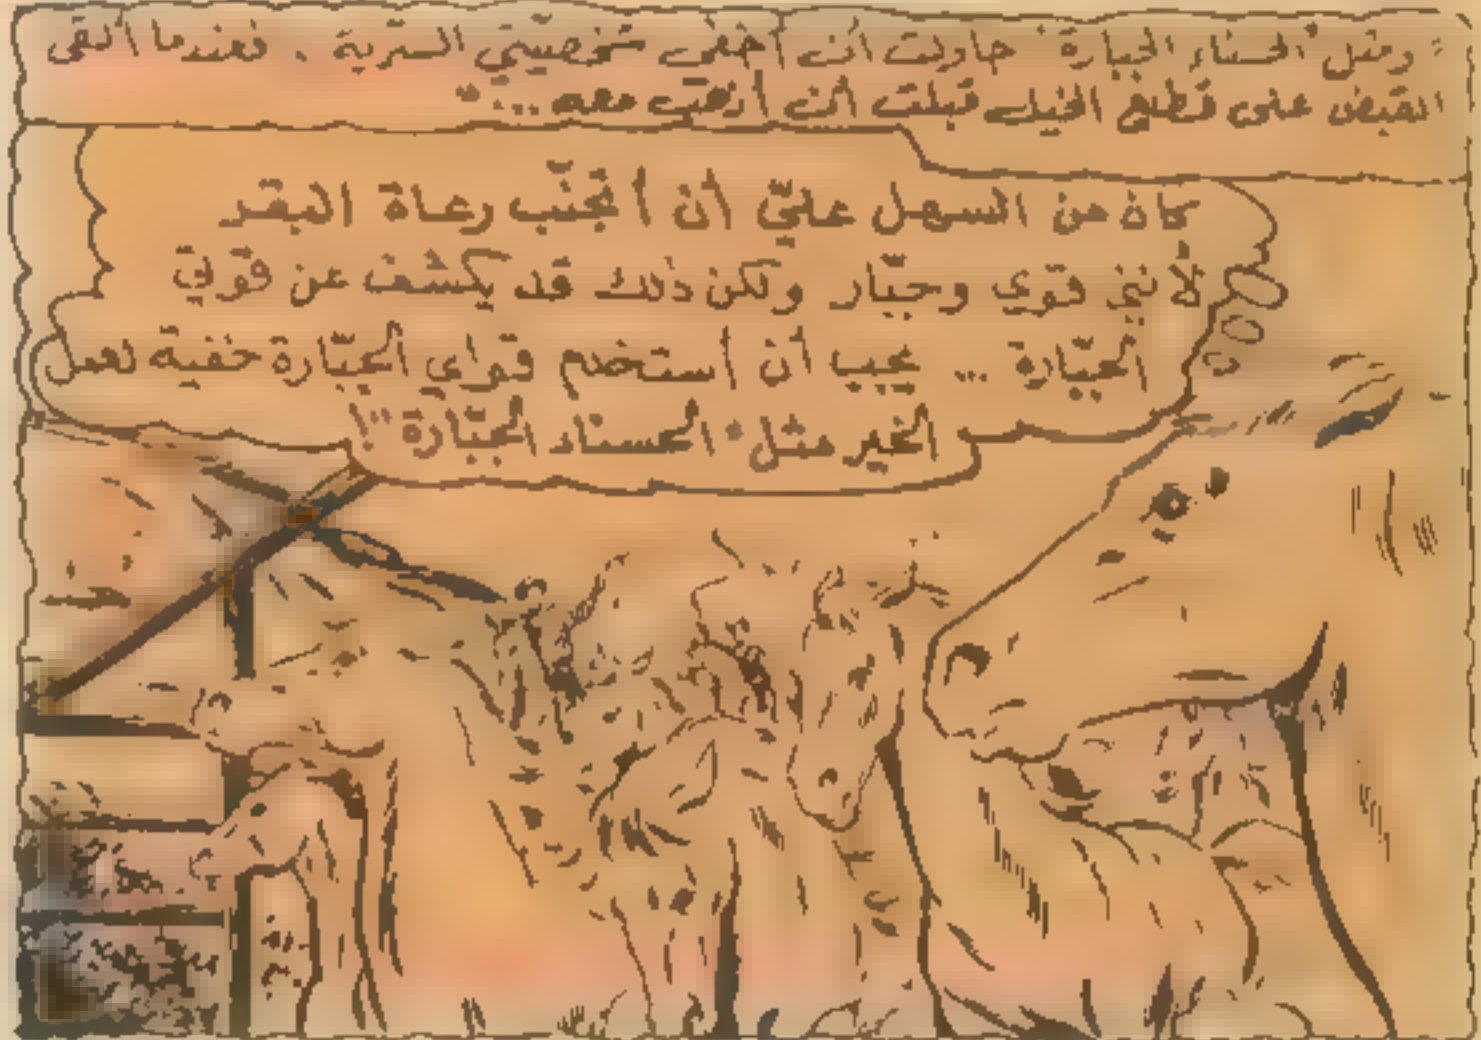 "ومثل "الحسناء الجبارة" حاولت أن أخفي شخصيتي السرية . فعندما ألقى
القبض على قطيع الخيل قبلت أن أذهب معه ..."
كان من السهل عليّ أن أتجنّب رعاة البقر
لأنني قوي وجبّار ولكن ذلك قد يكشف عن قوتي
الجبّارة ... يجب أن أستخدم قواي الجبّارة خفية لعمل
الخير مثل "الحسناء الجبّارة"!